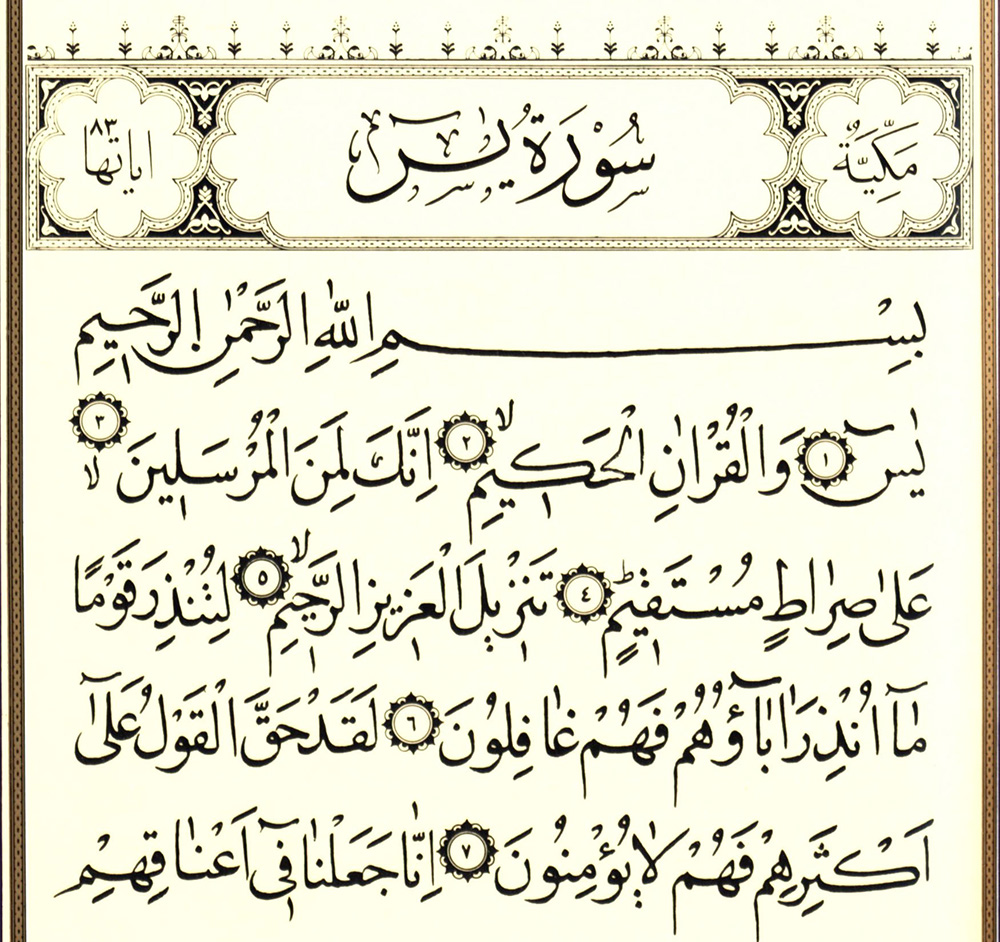 مَكِّيَّةٌ
سُوْرَةُ يٰسٓ
اٰيَاتُهَا ٨٣
بِسْمِ اللّٰهِ الرَّحْمٰنِ الرَّحٖيمِ
يٰسٓ ١ وَالْقُرْاٰنِ الْحَكٖيمِۙ ٢ اِنَّكَ لَمِنَ الْمُرْسَلٖينَۙ ٣
عَلٰى صِرَاطٍ مُسْتَقٖيمٍؕ ٤ تَنْزٖيلَ الْعَزٖيزِ الرَّحٖيمِۙ ٥ لِتُنْذِرَ قَوْمًا
مَٓا اُنْذِرَ اٰبَٓاؤُ۬هُمْ فَهُمْ غَافِلُونَ ٦ لَقَدْ حَقَّ الْقَوْلُ عَلٰٓى
اَكْثَرِهِمْ فَهُمْ لَا يُؤْمِنُونَ ٧ اِنَّا جَعَلْنَا فٖٓي اَعْنَاقِهِمْ